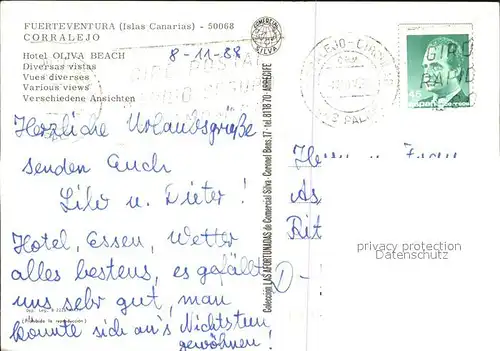 FUERTEVENTURA (Islas Canarias) - 50068
CORRALEJO
Hotel OLIVA BEACH
Diversas vistas
Vues diverses
Various views
Verschiedene Ansichten
8-11-88
SILVA
GIRO POSTAL
Herzliche Urlaubsgrüße
senden Euch
Lilo u. Dieter!
Hotel, Essen, Wetter
alles bestens, es gefällt
uns sehr gut, man
konnte sich an's Nichtstun
gewöhnen!
(Prohibida la reproducción)
Colección LAS AFORTUNADAS de Comercial Silva. Coronel Bens, 17 - tel. 81 18 70 - ARRECIFE
GIRO
45
España correos
Herrn u. Frau
As
Rit
D-
privacy protection
Datenschutz